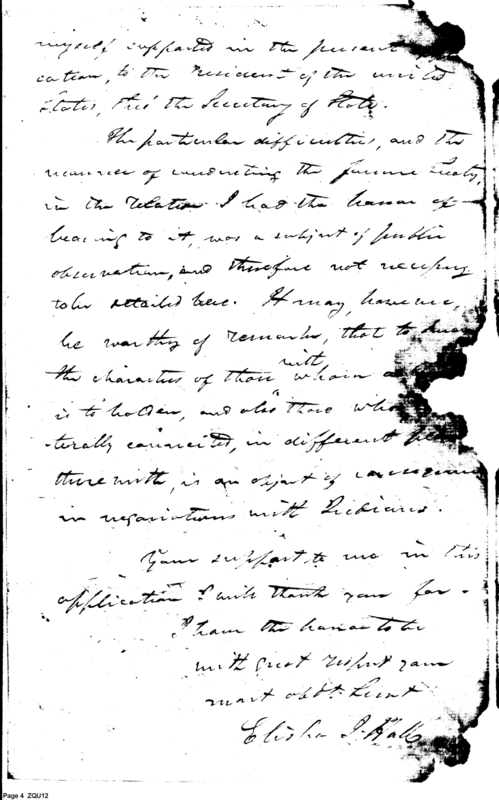 myself supported in the present
cation, to the President of the united
States, thro' the Secretary of State.
The particular difficulties, and the
manner of conducting the former Treaty,
in the relation I had the honor of
bearing to it, was a subject of public
observation, and therefore not necessary
to be detailed here. It may, however,
be worthy of remark, that to know
the characters of those with whom a
is to holden, and also those who
-terally connected, in different
therewith, is an object of consequence
in negociations with Indians.
Your support to me in this
application I will thank you for -
I have the honor to be
with great respect your
most obdt. Servt
Elisha I. Hall
Page 4 ZQU12